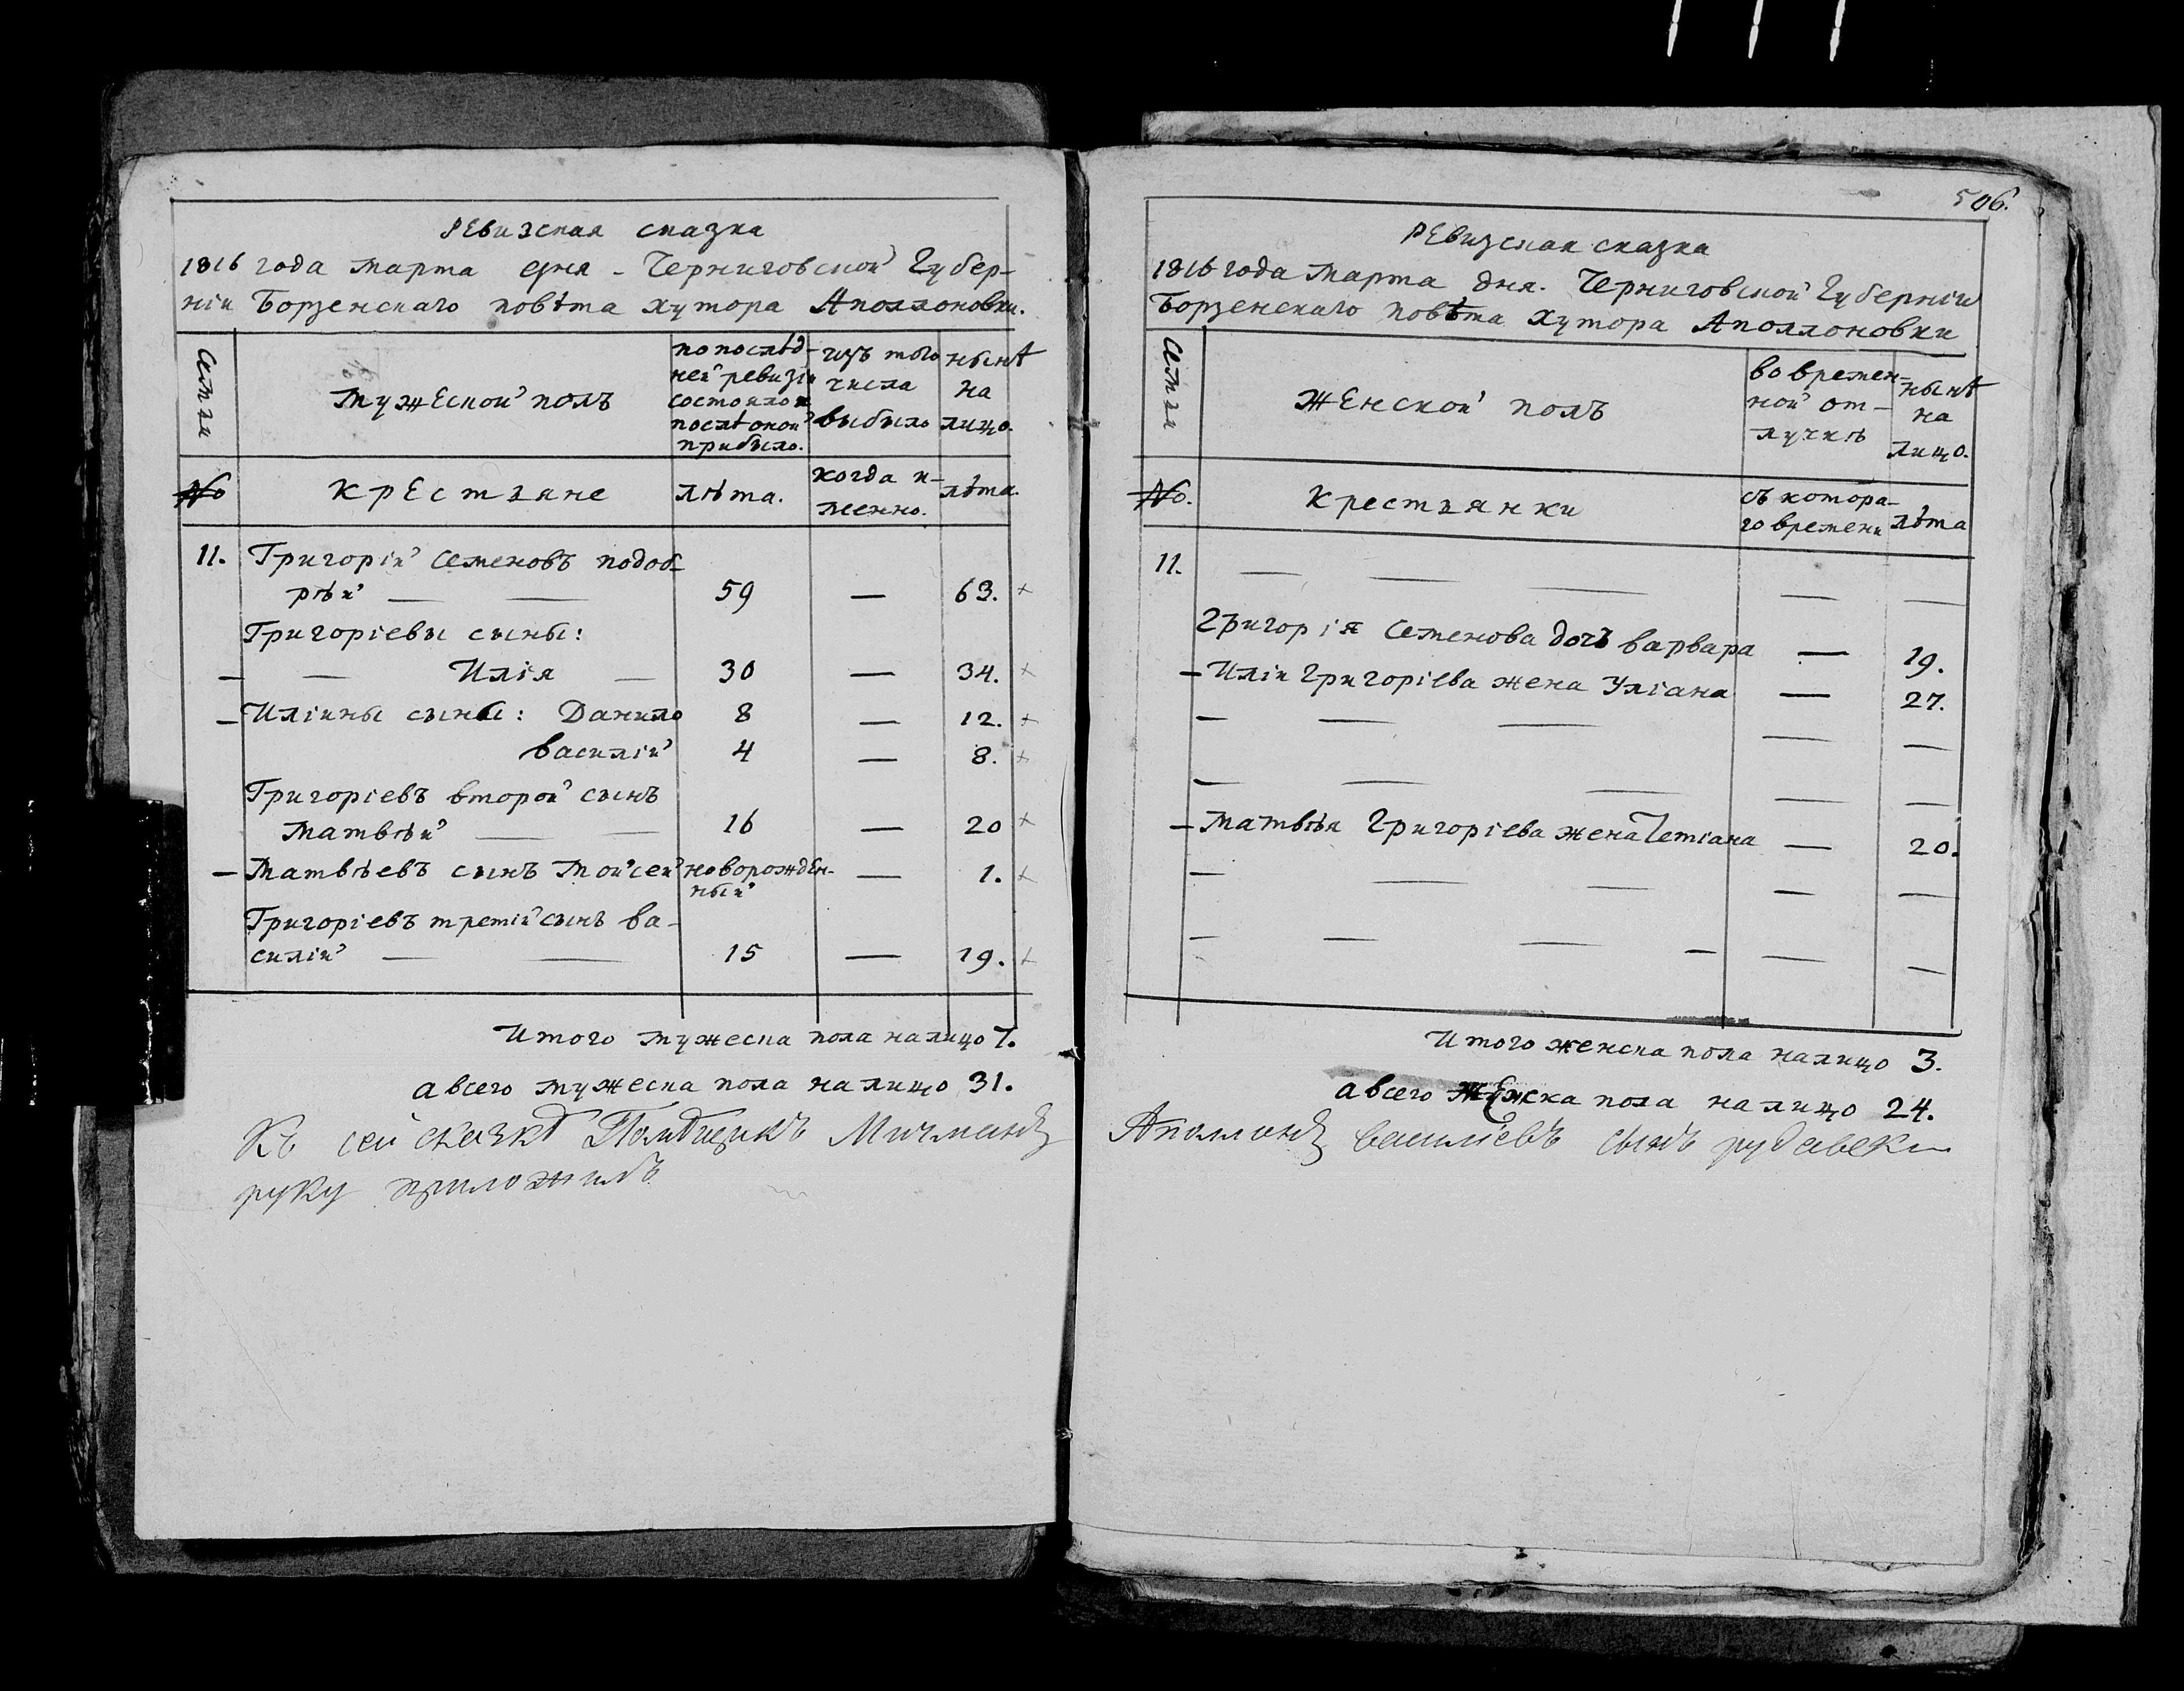 Ревизская сказка
1816 года марта дня - Черниговской Губер-
ніи Борзенскаго повѣта хутора Аполлоновки.
Семьи
Мужеской полъ
по послѣд-
ней ревизіи
состояло и
послѣ оной
прибыло.
изъ того
числа
выбыло
нынѣ
на
лицо.
№
Крестьяне
лѣта.
когда и-
менно.
лѣта.
11. Григорій Семеновъ подоб-
рѣй — — 59 — 63.
Григоріевы сыны:
— — Илія — 30 — 34.
— Иліины сыны: Данило 8 — 12.
Василій 4 — 8.
Григоріевъ второй сынъ
Матвѣй — — 16 — 20
— Матвѣевъ сынъ Мойсей новорожден- — 1.
ный
Григоріевъ третій сынъ Ва-
силій — — 15 — 19.
Итого мужеска пола налицо 7.
а всего мужеска пола на лицо 31.
Къ сей сказкѣ Помѣщикъ Мичманъ
руку приложилъ
506.
Ревизская сказка
1816 года Марта дня. Черниговской Губерніи
Борзенскаго повѣта хутора Аполлоновки
Семьи
Женской полъ
во времен-
ной от-
лучкѣ
нынѣ
на
лицо.
№.
Крестьянки
съ котора-
го времени
лѣта
11. — — — — —
Григорія Семенова дочь Варвара — 19.
— Иліи Григоріева жена Уліана — 27.
— — — — —
— — — — —
— Матвѣя Григоріева жена Тетіана — 20.
— — — — —
— — — — — —
Итого женска пола налицо 3.
а всего женска пола на лицо 24.
Аполлонъ Васильевъ сынъ